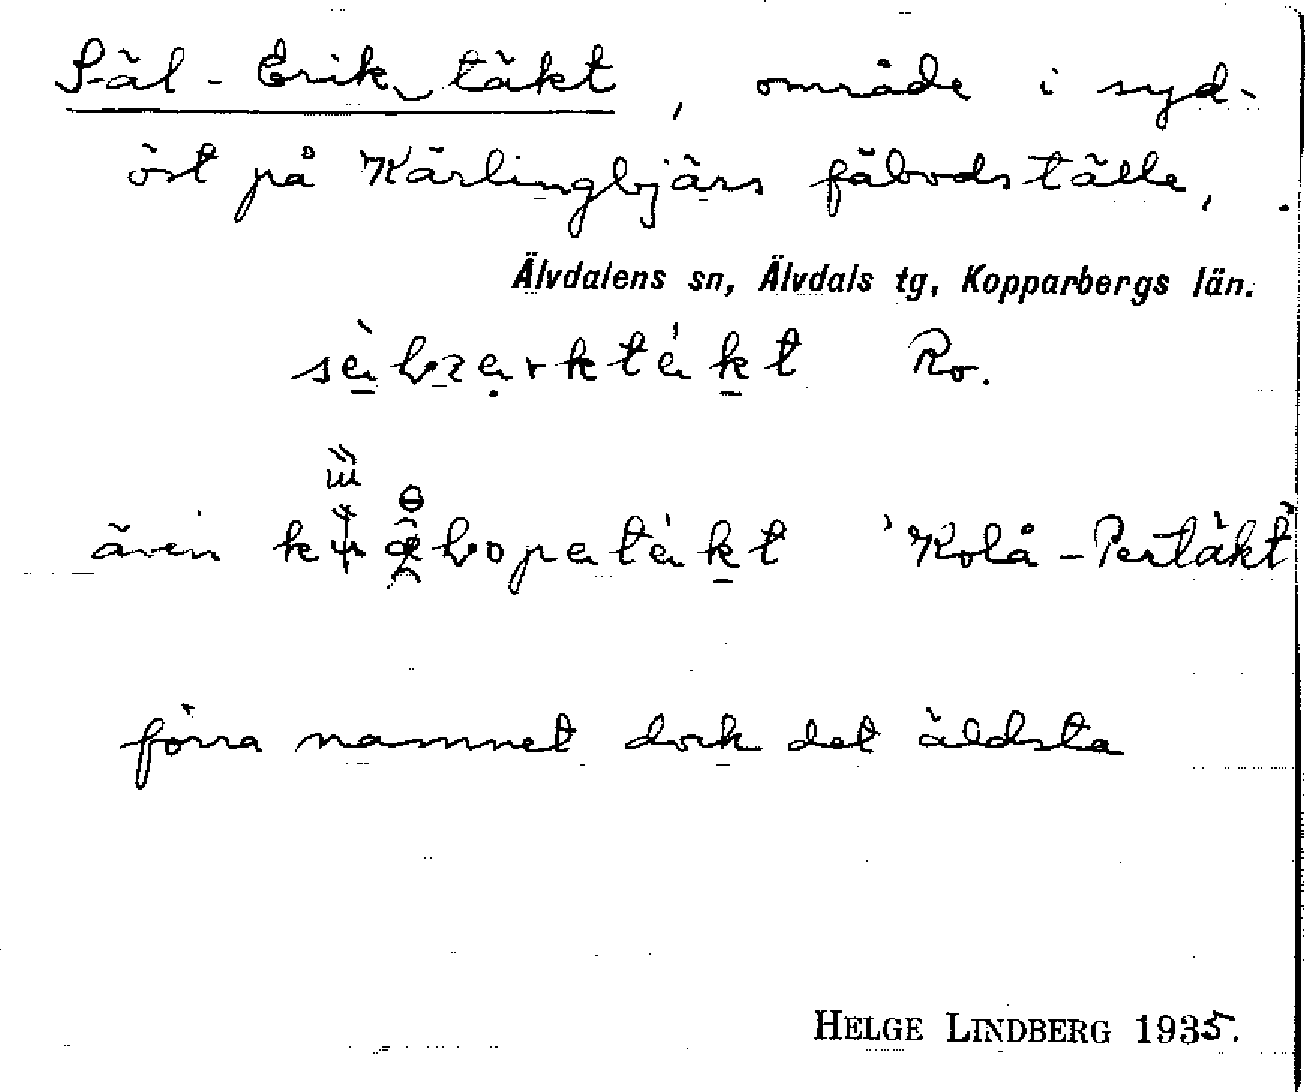 Säl-Erik_täkt, område i syd-
öst på Kärlingbjärs fäbodställe,
Älvdalens sn, Älvdals tg, Kopparbergs län.
Ro.
även 'Kolå-Pertäkt'
förra namnet dock det äldsta
HELGE LINDBERG 1935.